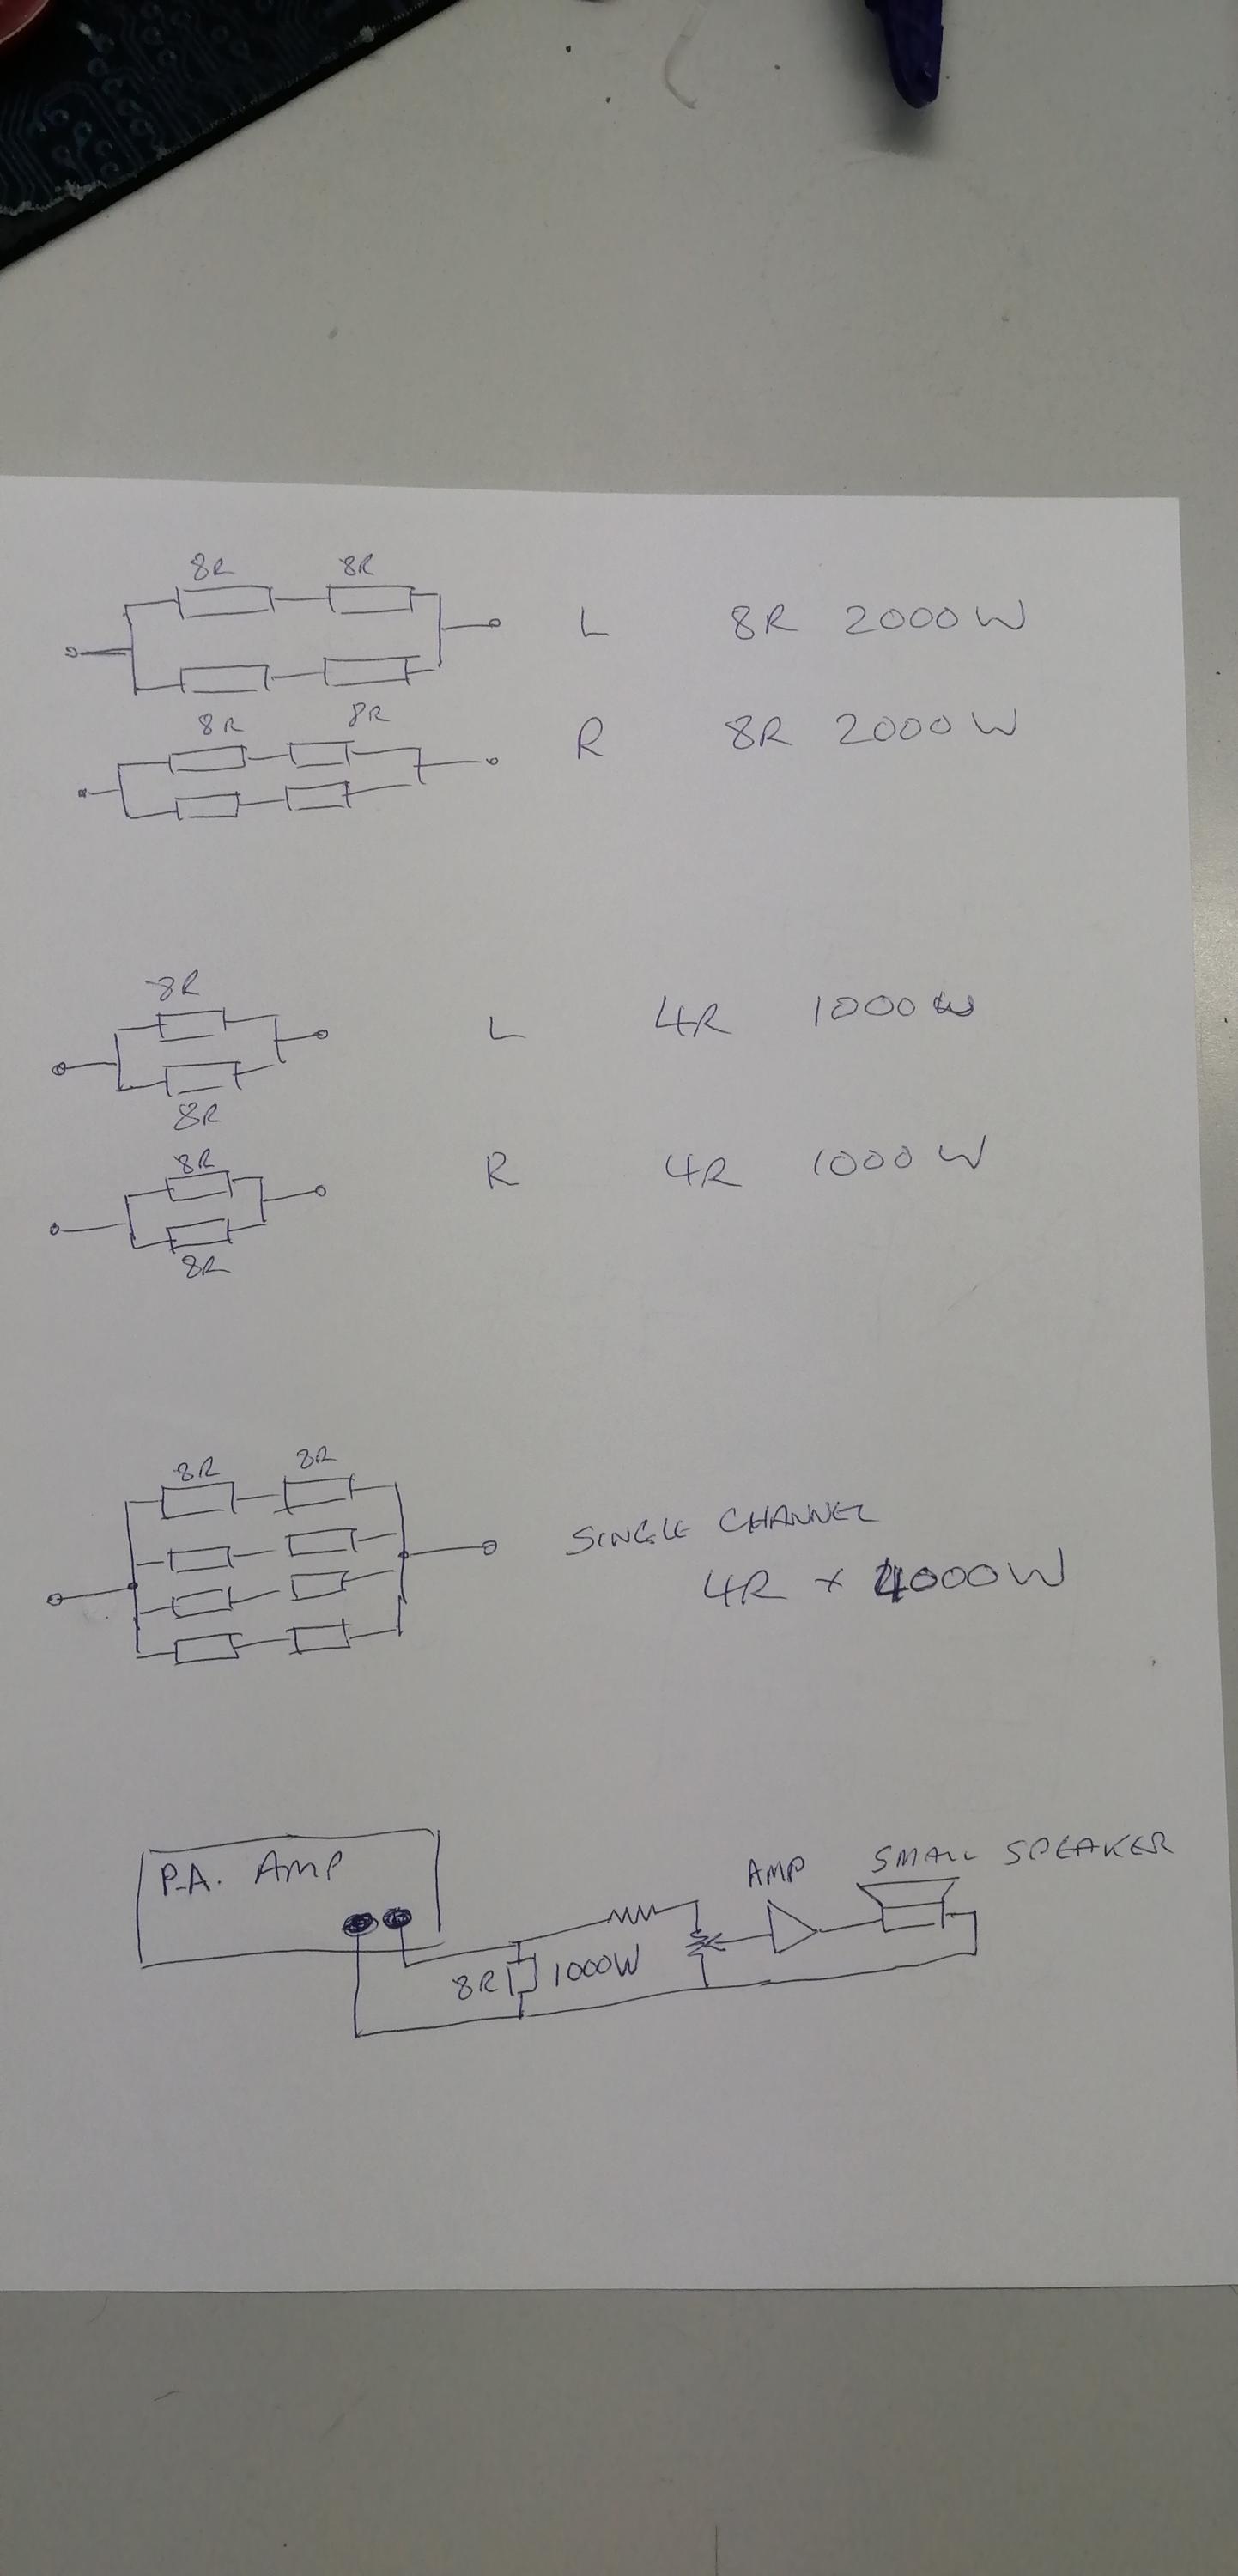 8R 8R
L 8R 2000W
8R 8R
R 8R 2000W
8R
L 4R 1000W
8R
8R
R 4R 1000W
8R
8R 8R
SINGLE CHANNEL
4R x 4000W
P.A. AMP
AMP SMALL SPEAKER
8R 1000W